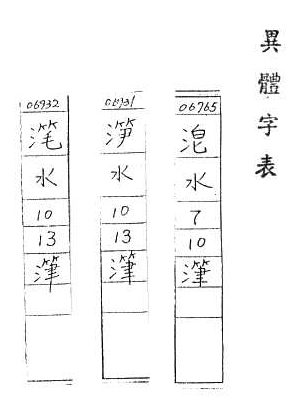 異體字表
06765
水
7
10
潷
06931
水
10
13
潷
06932
滗
水
10
13
潷